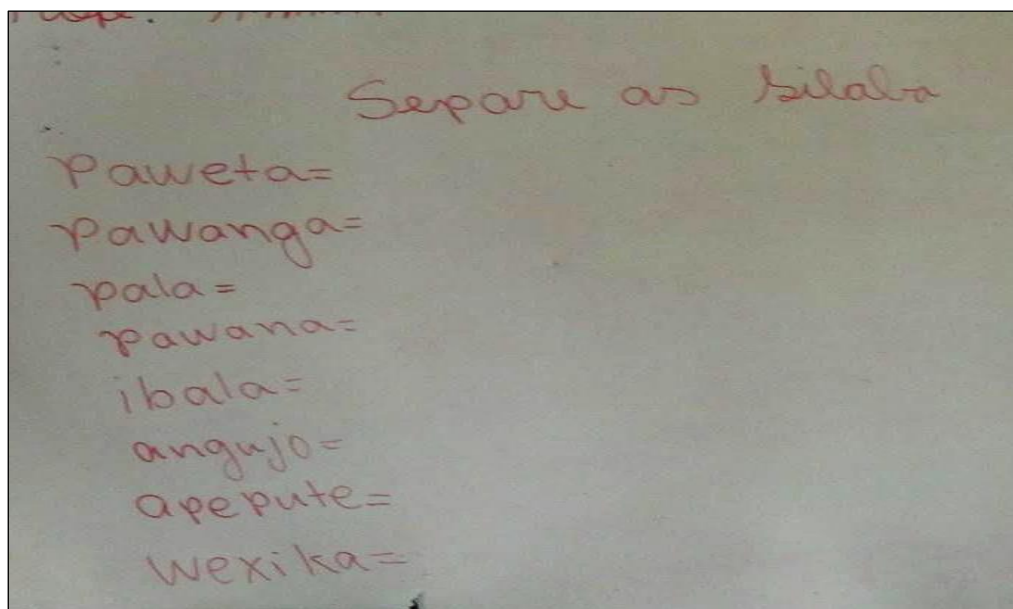 Separe as silaba
Paweta=
Pawanga=
pala=
pawana=
ibala=
angujo=
apepute=
wexika=